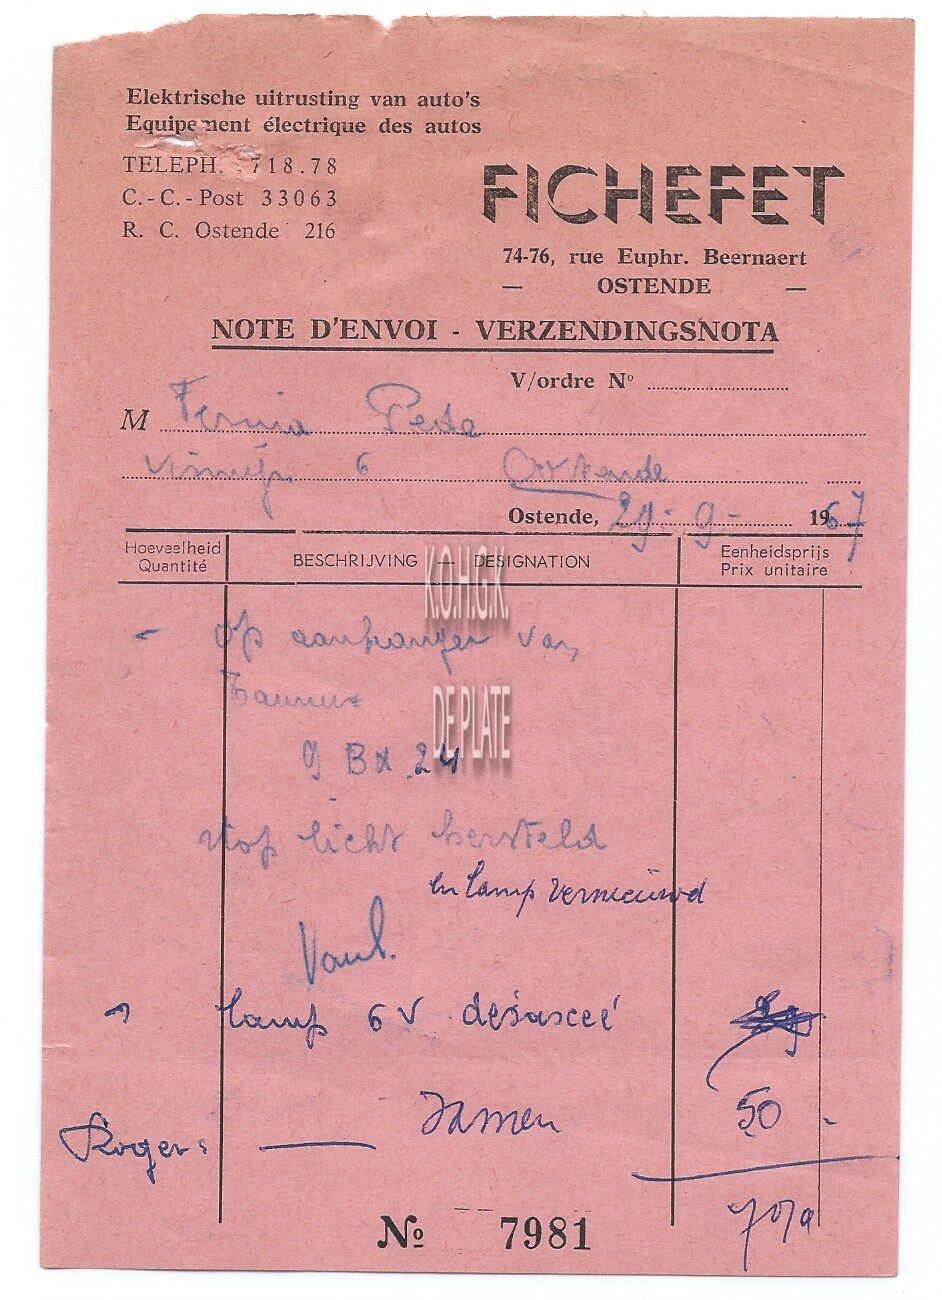 Elektrische uitrusting van auto's
Equipement électrique des autos
TELEPH. 718.78
C.-C.-Post 33063
R. C. Ostende 216
FICHEFET
74-76, rue Euphr. Beernaert
— OSTENDE —
NOTE D'ENVOI - VERZENDINGSNOTA
V/ordre Nº
M Peste
6 Oostende
Ostende, 29-9- 1967
Hoeveelheid
Quantité
BESCHRIJVING — DESIGNATION
Eenheidsprijs
Prix unitaire
K.O.H.G.K.
DE PLATE
- op aanhanger van
Taunus
9 BX 24
stop licht hersteld
en lamp vernieuwd
1 lamp 6 V
50 -
Roger: — Samen
Nº 7981